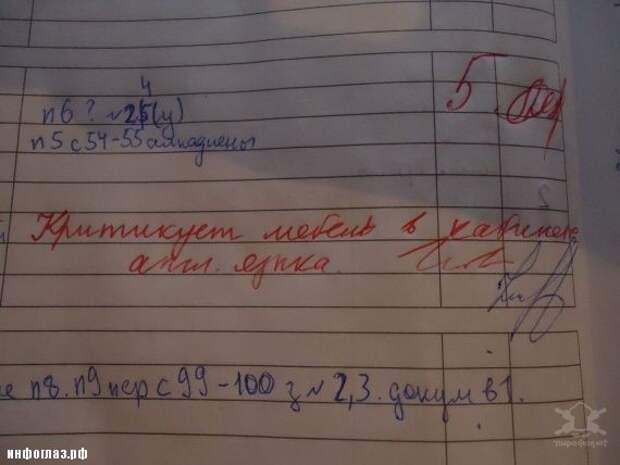 4
п6? №25(у)
5
п5 с54-55 алкадиены
Критикует мебель в кабинете
англ. языка.
п8. п9 пер с99-100 з№2,3. докум в1.
инфоглаз.рф